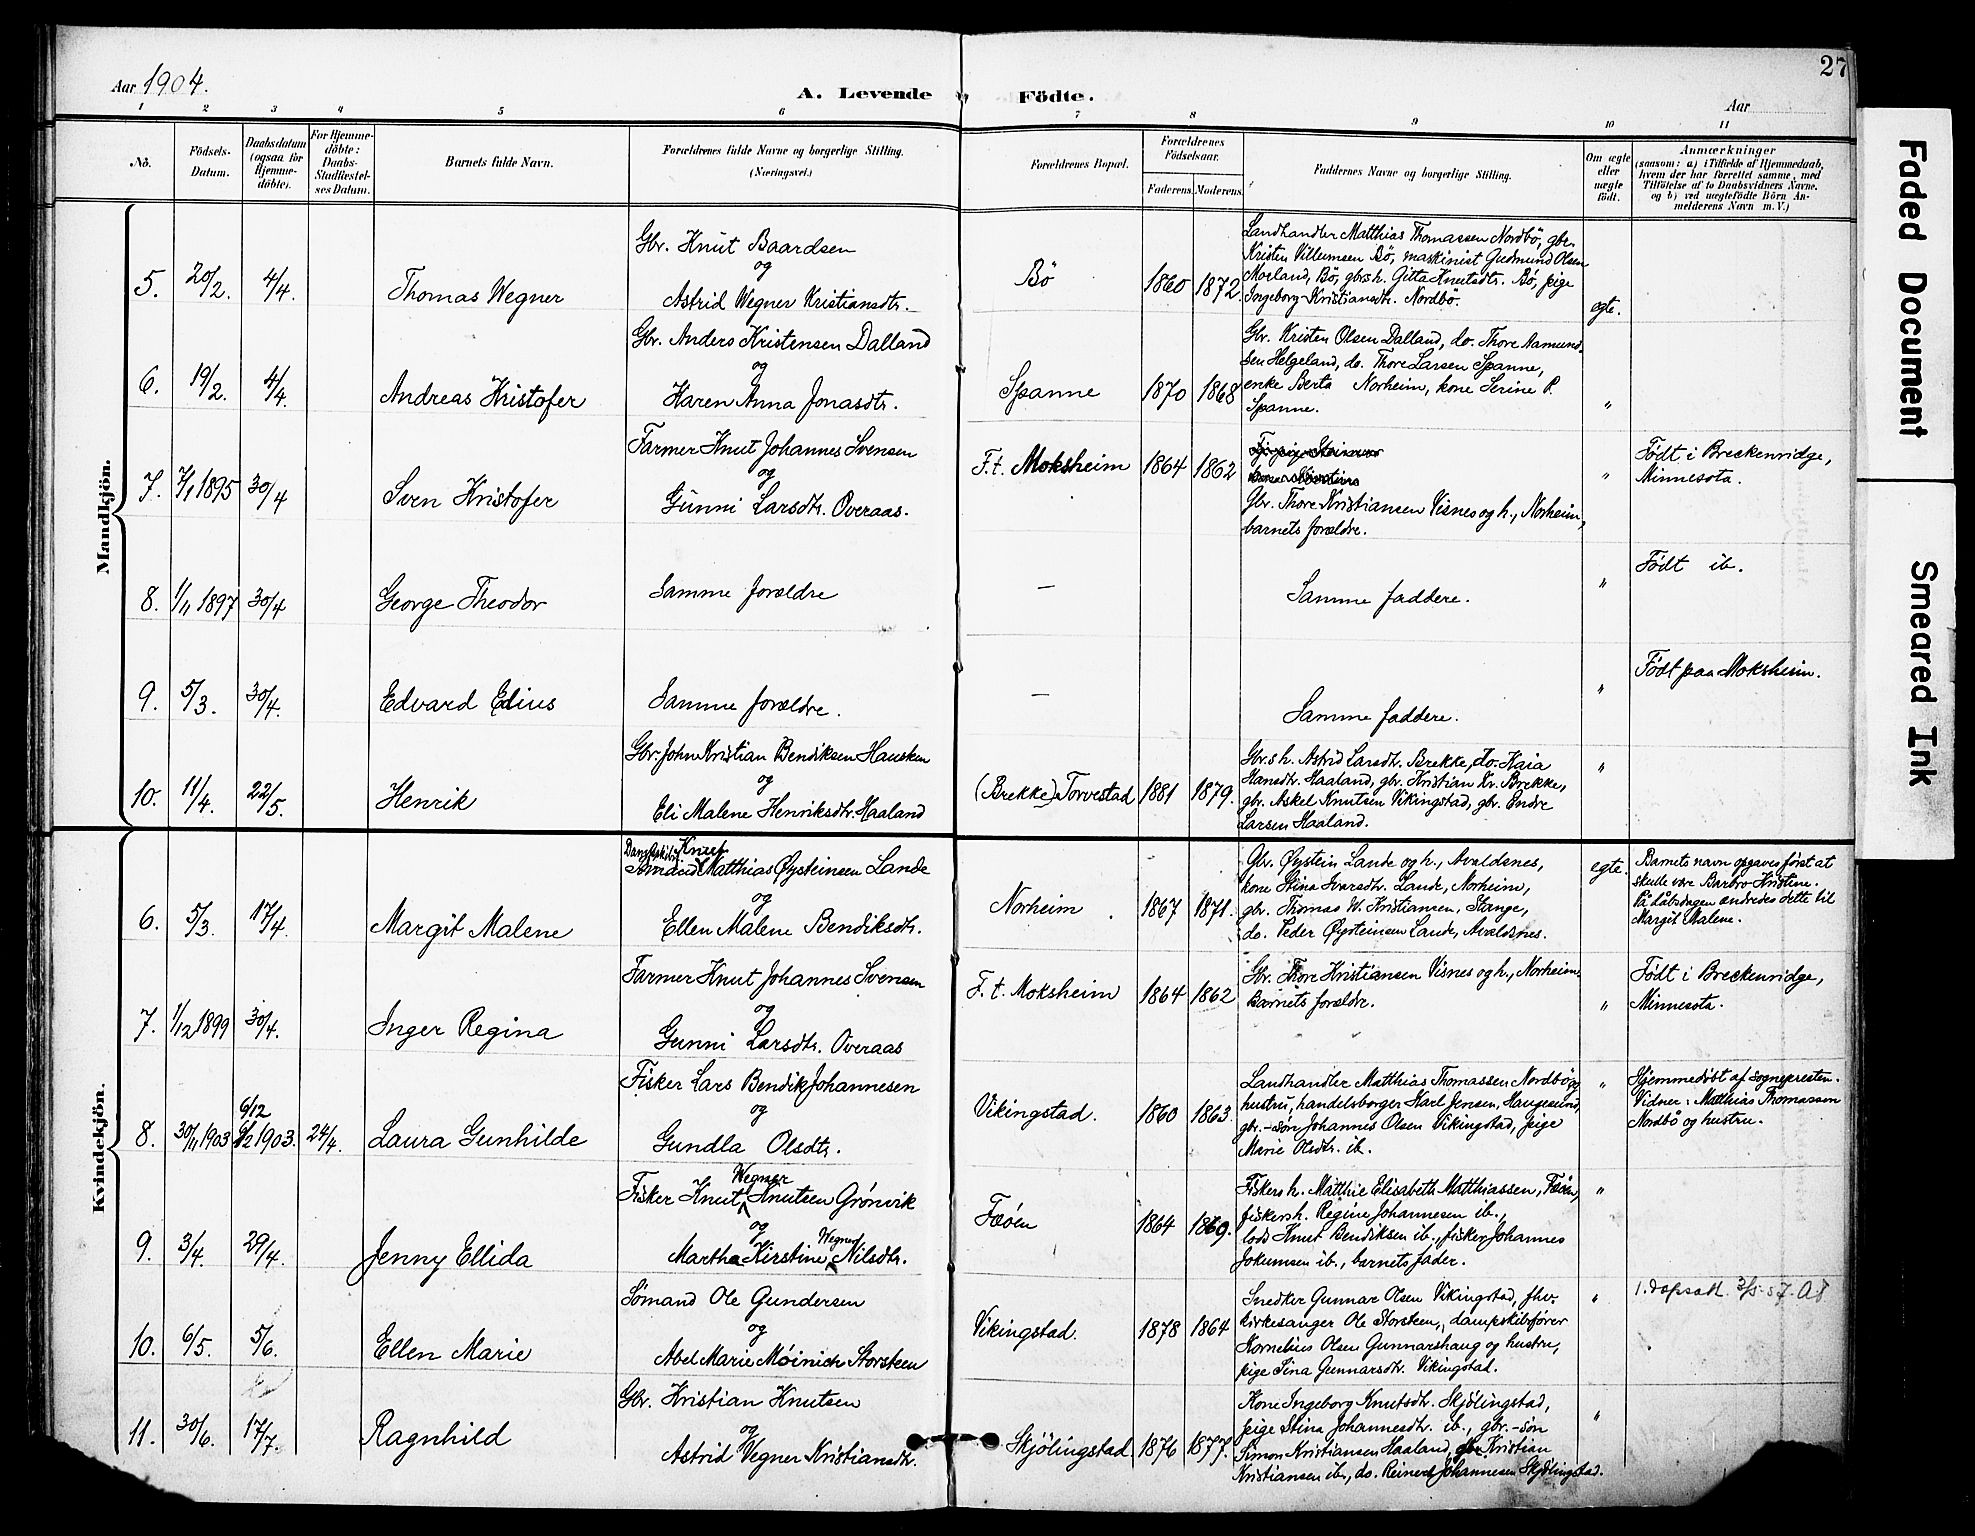 27
Aar 1904.
A. Levende Födte.
Aar
1 2 3 4 5 6 7 8 9 10 11
No.
Födsels-Datum.
Daabsdatum (ogsaa for Hjemme-döbte).
For Hjemme-döbte: Daabs-Stadfæstel-ses Datum.
Barnets fulde Navn.
Forældrenes fulde Navne og borgerlige Stilling. (Næringsvei.)
Forældrenes Bopæl.
Forældrenes Födselsaar.
Faderens. Moderens.
Faddernes Navne og borgerlige Stilling.
Om ægte eller uægte födt.
Anmærkninger
(saasom: a) i Tilfælde af Hjemmedaab, hvem der har forrettet samme, med Tilföielse af to Daabsvidners Navne. og b) ved uægtefödte Börn An-melderens Navn m. V.)
Mandkjön.
5. 20/2. 4/4. Thomas Wegner
Gbr. Knut Baardsen
og
Astrid Wegner Kristiansdtr.
Bö 1860 1872
Landhandler Matthias Thomassen Nordbö, gbr.
Kristen Villumsen Bö, maskinist Gudmund Olsen
Moeland, Bö, gbrs h. Gitta Knutsdtr. Bö, pige
Ingeborg Kristiansdtr. Nordbö.
egte.
6. 19/2. 4/4. Andreas Kristofer
Gbr. Anders Kristensen Dalland
og
Karen Anna Jonasdtr.
Spanne 1870 1868
Gbr. Kristen Olsen Dalland, do. Thore Aamund-
sen Helgeland, do. Thore Larsen Spanne,
enke Berta Norheim, kone Serine P.
Spanne.
"
7. 7/1 1895 30/4 Sven Kristofer
Farmer Knut Johannes Svensen
og
Gunni Larsdtr. Overaas.
F. t. Moksheim 1864 1862
Gbr. Thore Kristiansen Visnes og h., Norheim,
barnets forældre.
"
Födt i Breckenridge,
Minnesota.
8. 1/11 1897 30/4 George Theodor
Samme forældre
—
Samme faddere.
"
Födt ib.
9. 5/3. 30/4. Edvard Elius
Samme forældre.
—
Samme faddere.
"
Födt paa Moksheim.
10. 11/4. 22/5. Henrik
Gbr. John Kristian Bendiksen Hausken
og
Eli Malene Henriksdtr. Haaland
(Brekke) Torvestad 1881 1879.
Gbr.s h. Astrid Larsdtr. Brekke, do. Kaia
Hansdtr. Haaland, gbr. Kristian Kr. Brekke,
gbr. Askel Knutsen Vikingstad, gbr. Endre
Larsen Haaland.
"
Kvindekjön.
6. 5/3. 17/4. Margit Malene
Knut
Matthias Øysteinsen Lande
og
Ellen Malene Bendiksdtr.
Norheim 1867 1871.
Gbr. Øystein Lande og h., Avaldsnes,
kone Stina Ivarsdtr. Lande, Norheim,
gbr. Thomas W. Kristiansen, Stange,
do. Peder Øysteinsen Lande, Avaldsnes.
egte.
Barnets navn opgaves först at
skulle være Barbro Kristine.
På dåbsdagen ændredes dette til
Margit Malene.
7. 1/12 1899 30/4. Inger Regina
Farmer Knut Johannes Svensen
og
Gunni Larsdtr. Overaas
F. t. Moksheim 1864 1862
Gbr. Thore Kristiansen Visnes og h., Norheim.
Barnets forældre.
"
Födt i Breckenridge,
Minnesota.
8. 30/11 1903 6/12 1903. 24/4. Laura Gunhilde
6/12
Fisker Lars Bendik Johannesen
og
Gundla Olsdtr.
Vikingstad. 1860 1863.
Landhandler Matthias Thomassen Nordbö og
hustru, handelsborger Karl Jensen, Haugesund,
gbr.-sön Johannis Olsen Vikingstad, pige
Marie Olsdtr. ib.
"
Hjemmedöbt af sognepresten.
Vidner: Matthias Thomassen
Nordbö og hustru.
9. 3/4. 29/4. Jenny Ellida
Wegner
Fisker Knut Knutsen Grönvik
og
Wegner
Martha Kirstine Nilsdtr.
Fæöen 1864 1869.
Fiskers h. Matthie Elisabeth Matthiassen, Fæöen,
fiskersh. Regine Johannesen ib.,
lods Knut Bendiksen ib., fisker Johannes
Jokumsen ib., barnets fader.
"
10. 6/5. 5/6. Ellen Marie
Sömand Ole Gundersen
og
Abel Marie Möinich Storsteen
Vikingstad. 1878 1864
Snedker Gunnar Olsen Vikingstad, fhv.
kirkesanger Ole Storsteen, dampskibförer
Kornelius Olsen Gunnarshaug og hustru,
pige Sina Gunnarsdtr. Vikingstad.
"
11. 30/6. 17/7. Ragnhild
Gbr. Kristian Knutsen
og
Astrid Vegner Kristiansdtr.
Skjölingstad 1876 1877.
Kone Ingeborg Knutsdtr. Skjölingstad,
pige Stina Johannesdtr. ib., gbr.-sön
Simon Kristiansen Haaland, gbr. Kristian
Kristiansen ib., do. Reinert Johannesen Skjölingstad.
"
Faded Document
Smeared Ink